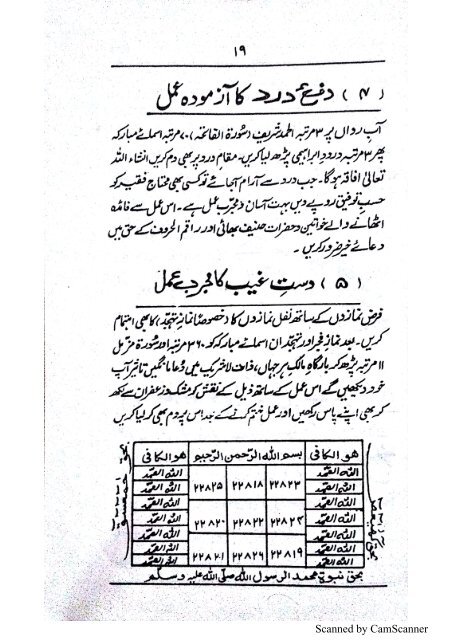 ۱۹
(۴) دفعِ درد کا آزمودہ عمل
آبِ رواں پر ۳ مرتبہ الحمد شریف (سُورۃ الفاتحہ) ۷۰ مرتبہ اسمائے مبارکہ
پھر ۳ مرتبہ درودِ ابراہیمی پڑھ لیا کریں۔ مقامِ درد پر بھی دم کریں انشاء اللہ
تعالیٰ افاقہ ہوگا۔ جب درد سے آرام آجائے تو کسی بھی محتاج فقیر کو
حسبِ توفیق روپے دیں بہت آسان و مجرب عمل ہے۔ اس عمل سے فائدہ
اٹھانے والے خواتین و حضرات حنیف بھائی اور راقم الحروف کے حق میں
دعائے خیر ضرور کریں۔
(۵) دستِ غیب کا مجرب عمل
فرض نمازوں کے ساتھ نفل نمازوں کا (خصوصاً نمازِ تہجد) کا بھی اہتمام
کریں۔ بعد نمازِ فجر اور تہجد ان اسمائے مبارکہ کو ۳۶۰ مرتبہ اور سُورۃ مزمل
۱۱ مرتبہ پڑھ کر بارگاہ مالک ہر جہاں، ذات لاشریک میں دُعا مانگیں تاثیر آپ
خود دیکھیں گے اس عمل کے ساتھ ذیل کے نقش کو مشک و زعفران سے لکھ
کر بھی اپنے پاس رکھیں اور عمل ختم کرنے کے بعد اس پر دم بھی کر لیا کریں
ھو الکافی بسم اللہ الرحمن الرحیم ھو الکافی
اللہ الصمد اللہ الصمد
اللہ الصمد ۲۲۸۲۵ ۲۲۸۱۸ ۲۲۸۲۳ اللہ الصمد
اللہ الصمد اللہ الصمد
اللہ الصمد ۲۲۸۲۰ ۲۲۸۲۲ ۲۲۸۲۴ اللہ الصمد
اللہ الصمد اللہ الصمد
اللہ الصمد ۲۲۸۲۱ ۲۲۸۲۶ ۲۲۸۱۹ اللہ الصمد
بحق نبوۃ محمد الرسول اللہ صلی اللہ علیہ وسلم
Scanned by CamScanner